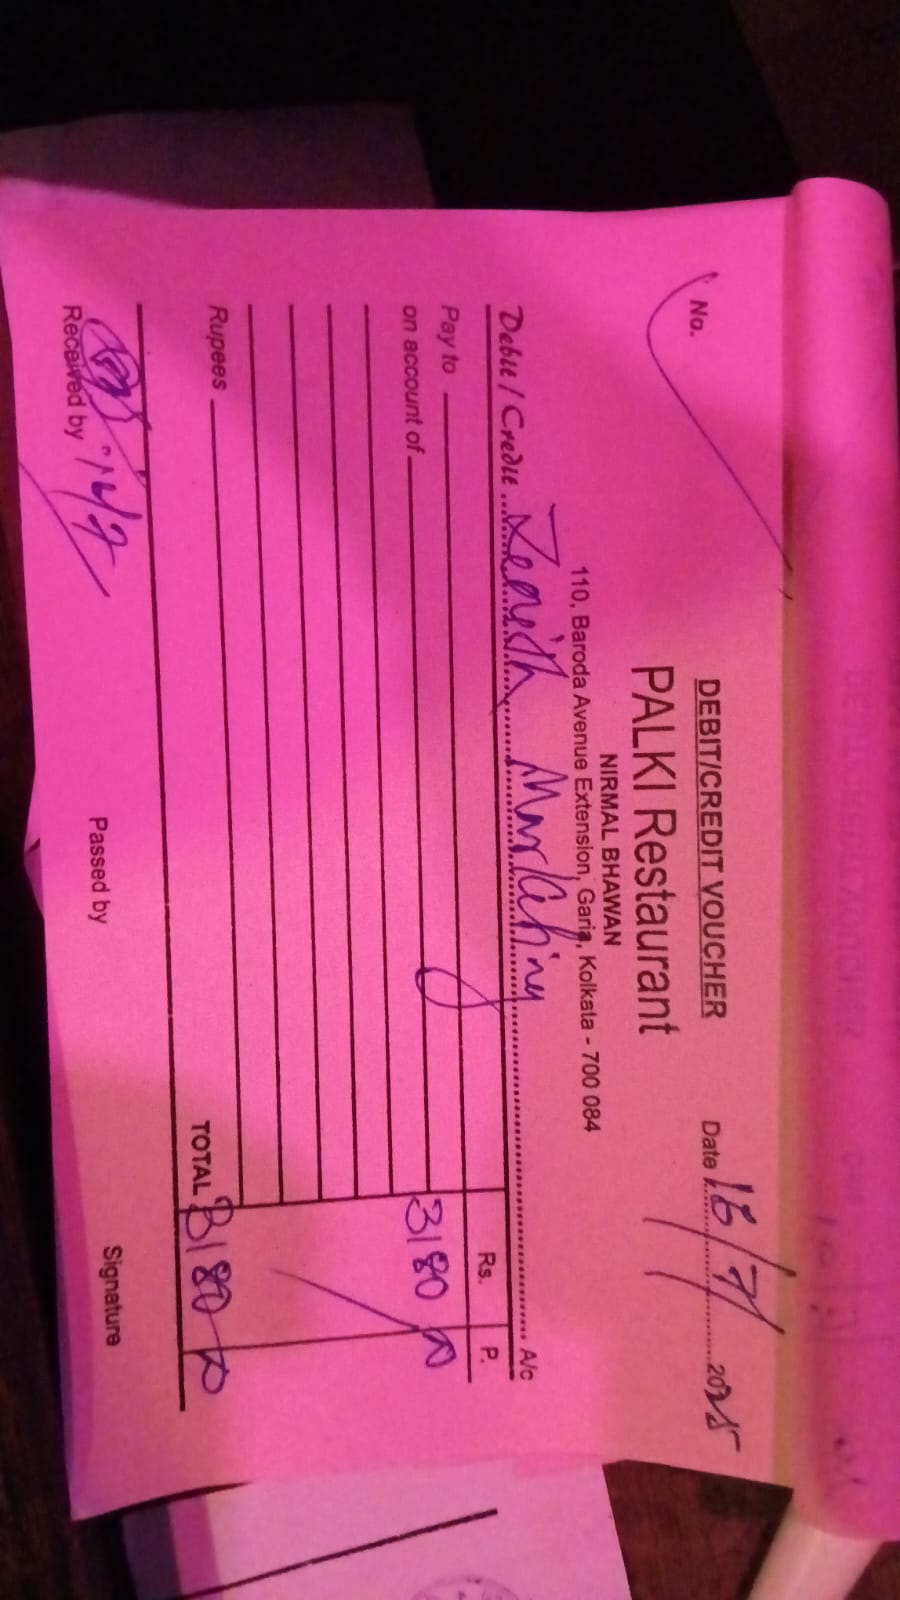 DEBIT/CREDIT VOUCHER
No.
Date 16/7/ 2025
PALKI Restaurant
NIRMAL BHAWAN
110, Baroda Avenue Extension, Garia, Kolkata - 700 084
Debit / Credit Zenith A/c
Rs. P.
Pay to
on account of 3180
Rupees
TOTAL 3180
Received by
Passed by
Signature